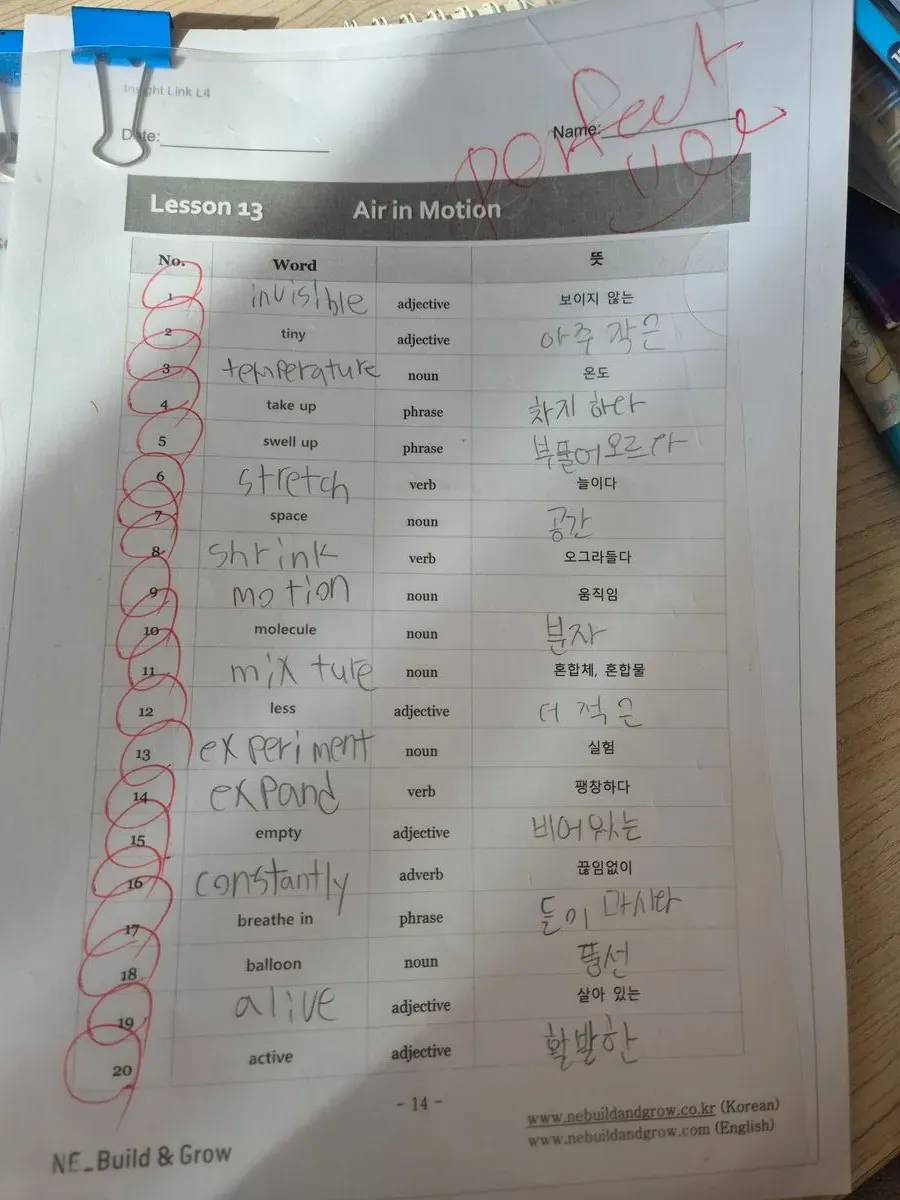 Insight Link L4
Date:
Name:
perfect
Lesson 13 Air in Motion
No. Word 뜻
1 invisible adjective 보이지 않는
2 tiny adjective 아주 작은
3 temperature noun 온도
4 take up phrase 차지 하다
5 swell up phrase 부풀어오르다
6 stretch verb 늘이다
7 space noun 공간
8 shrink verb 오그라들다
9 motion noun 움직임
10 molecule noun 분자
11 mixture noun 혼합체, 혼합물
12 less adjective 더 적은
13 experiment noun 실험
14 expand verb 팽창하다
15 empty adjective 비어있는
16 constantly adverb 끊임없이
17 breathe in phrase
18 balloon noun 풍선
19 alive adjective 살아 있는
20 active adjective 활발한
- 14 -
www.nebuildandgrow.co.kr (Korean)
www.nebuildandgrow.com (English)
NE_Build & Grow